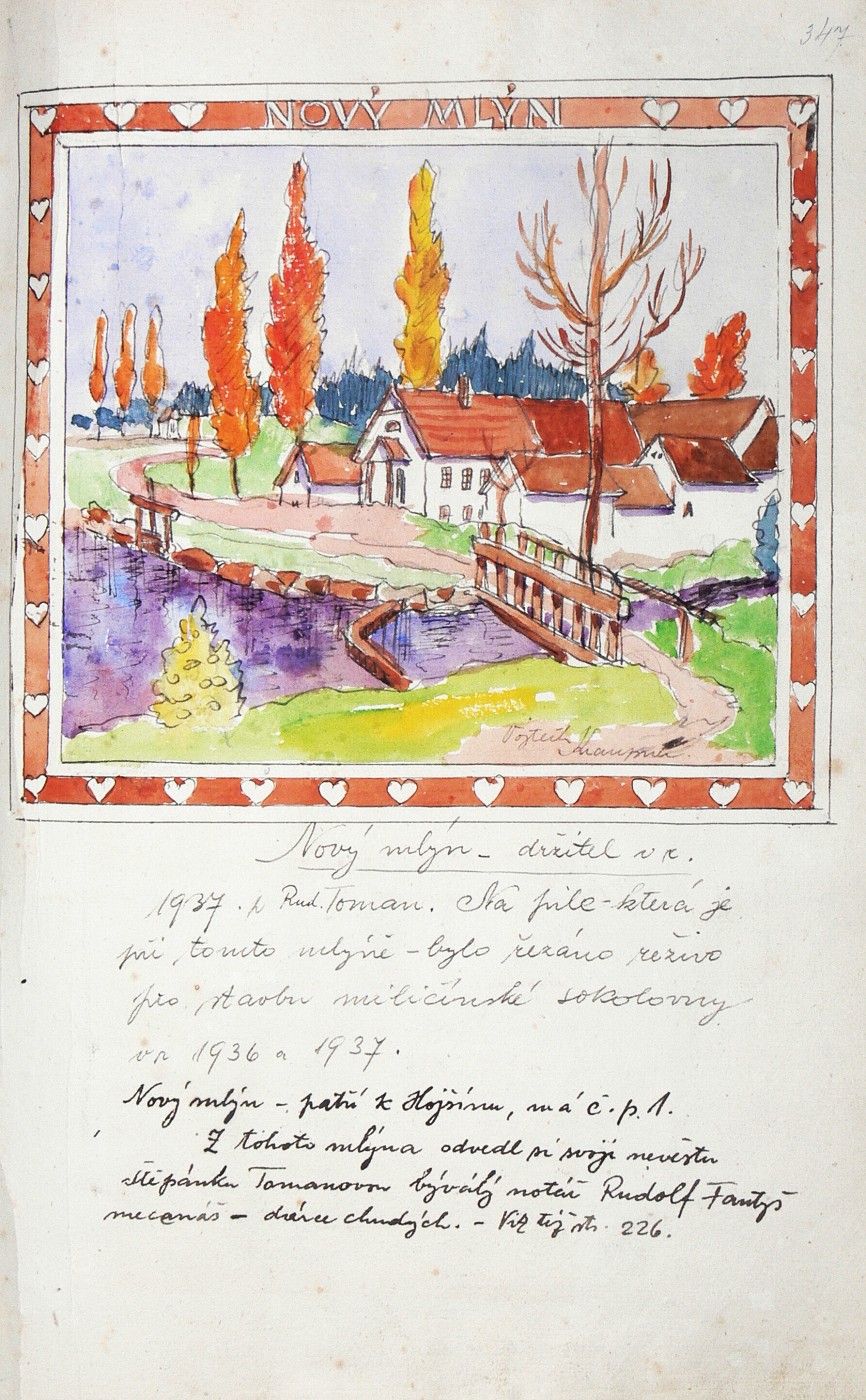 347
NOVÝ MLÝN
Vojtěch
Nový mlýn - držitel v r.
1937. p Rud. Toman. Na pile - která je
při tomto mlýně - bylo řezáno řezivo
pro stavbu miličínské sokolovny
v r 1936 a 1937.
Nový mlýn - patří k Hojšínu, má č. p. 1.
Z tohoto mlýna odvedl si svoji nevěstu
Štěpánku Tomanovou bývalý notář Rudolf Fantyš
mecenáš - dárce chudých. - Viz též str. 226.